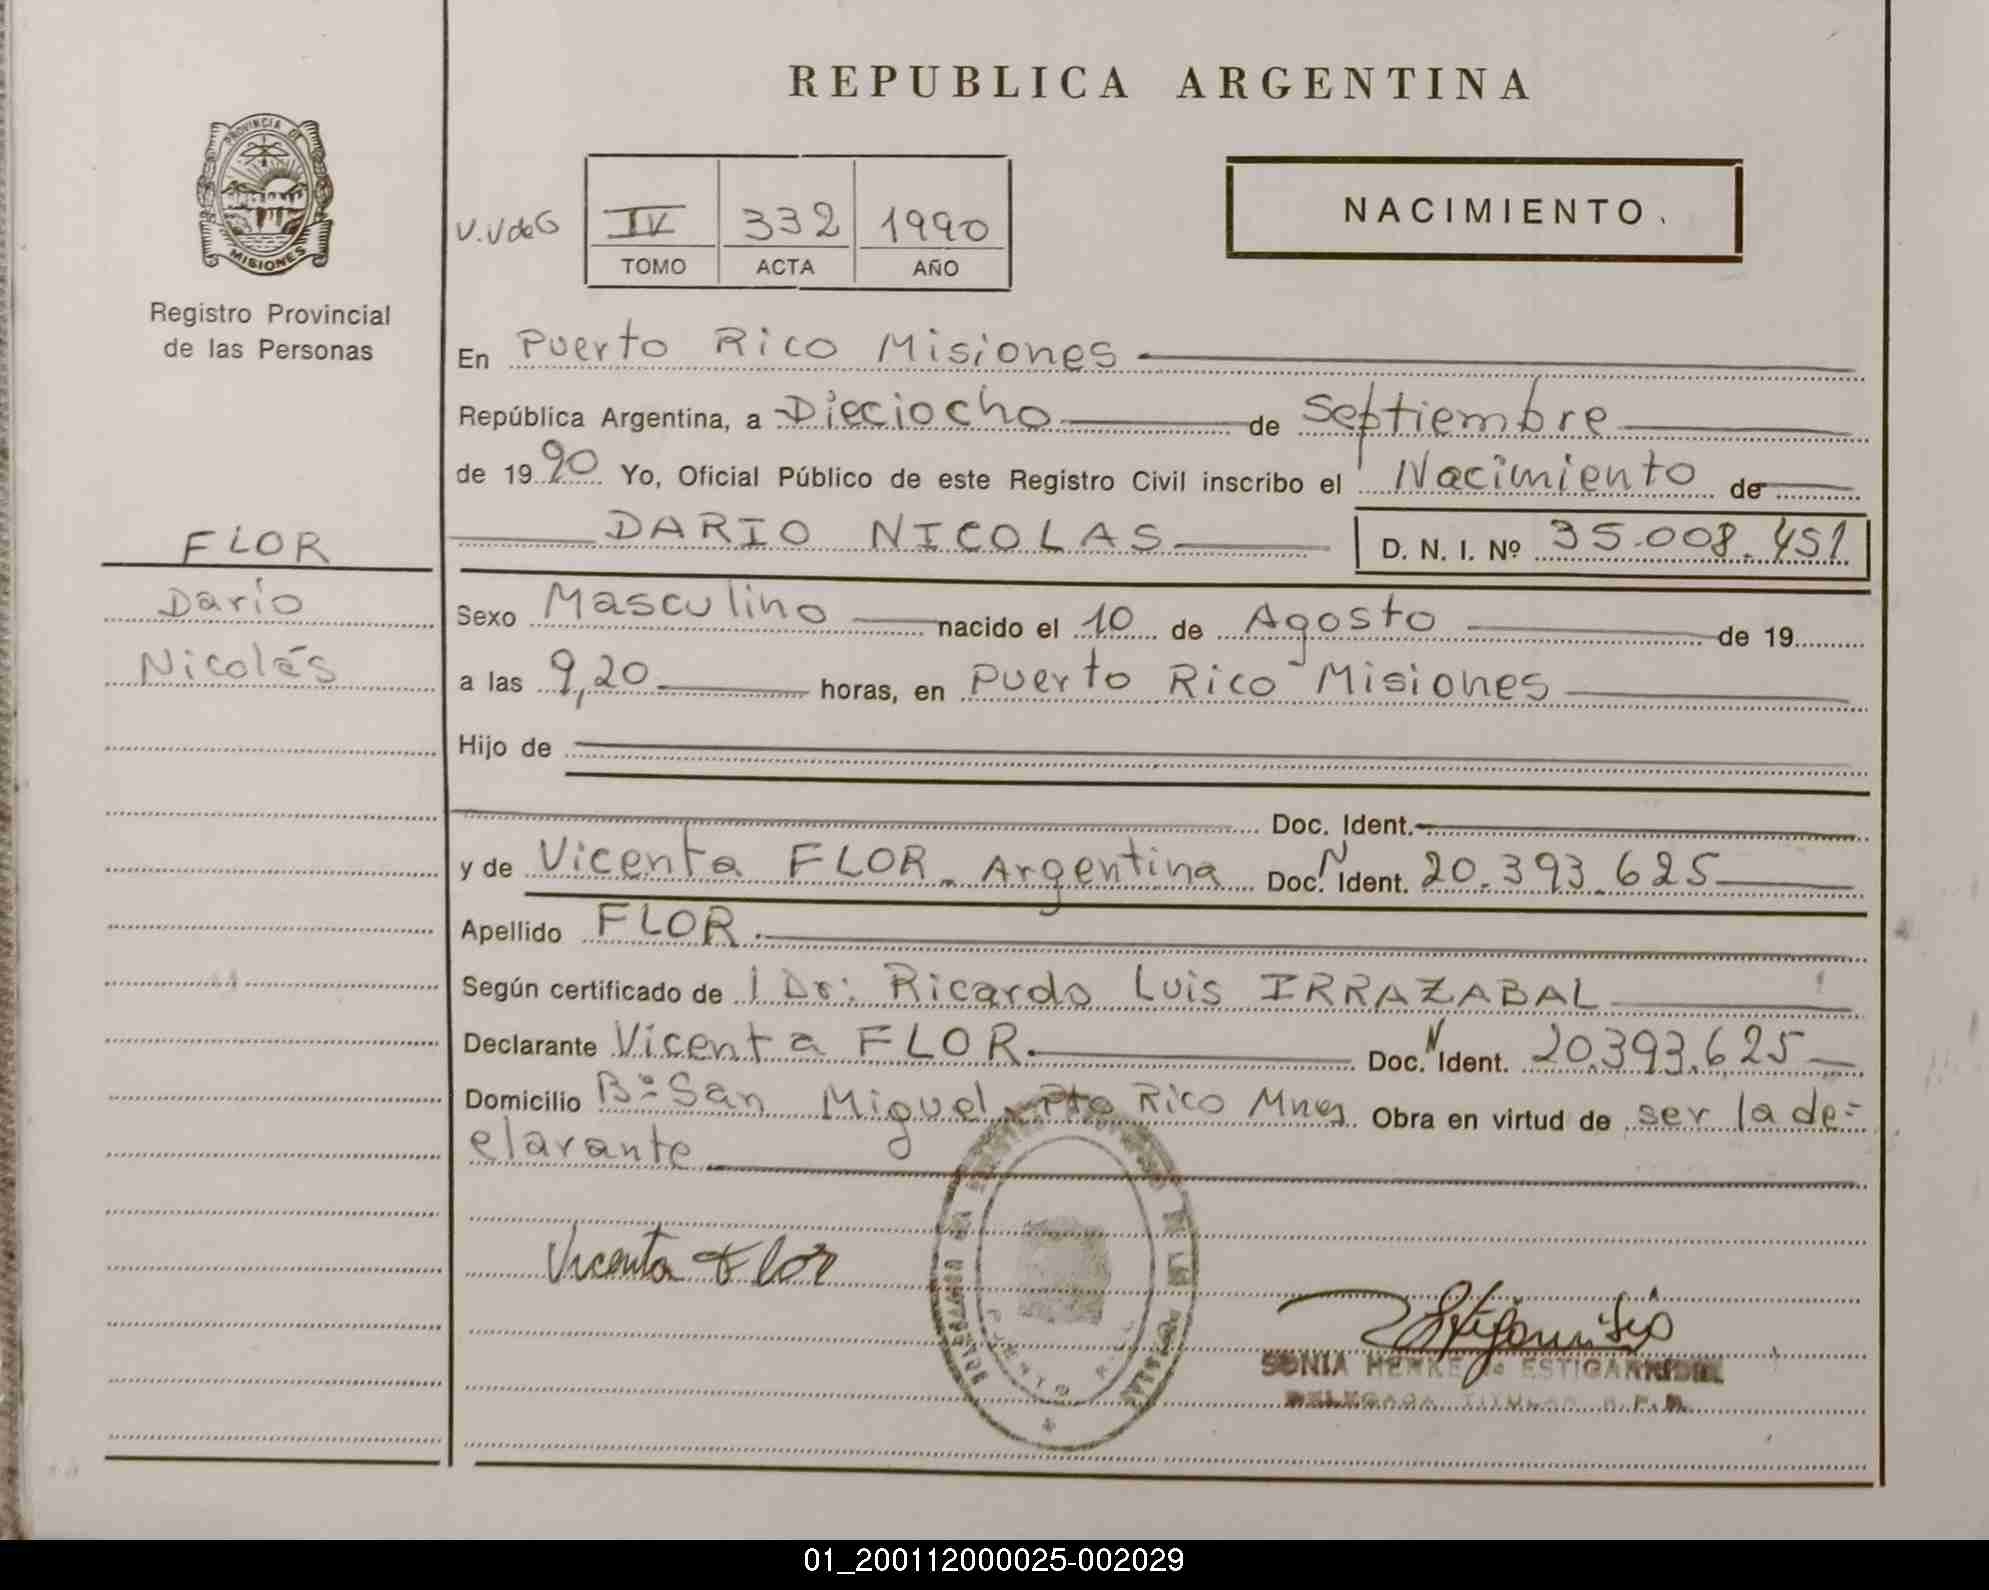 REPUBLICA ARGENTINA
PROVINCIA DE
MISIONES
Registro Provincial
de las Personas
V.V de G
IV 332 1990
TOMO ACTA AÑO
NACIMIENTO.
En Puerto Rico Misiones
República Argentina, a Dieciocho de Septiembre
de 1990 Yo, Oficial Público de este Registro Civil inscribo el Nacimiento de
DARIO NICOLAS D. N. I. Nº 35.008.451
FLOR
Darío
Nicolás
Sexo Masculino nacido el 10 de Agosto de 19
a las 9,20 horas, en Puerto Rico Misiones
Hijo de
Doc. Ident.
y de Vicenta FLOR. Argentina Doc. N Ident. 20.393.625
Apellido FLOR.
Según certificado de l Dr: Ricardo Luis IRRAZABAL
Declarante Vicenta FLOR. Doc. N Ident. 20.393.625
Domicilio Bº San Miguel. Pto Rico Mnes Obra en virtud de ser la de=
clarante
Vicenta Flor
SONIA HENKE de ESTIGARRIBIA
DELEGADA TITULAR R.P.P.
PUERTO RICO
01_200112000025-002029